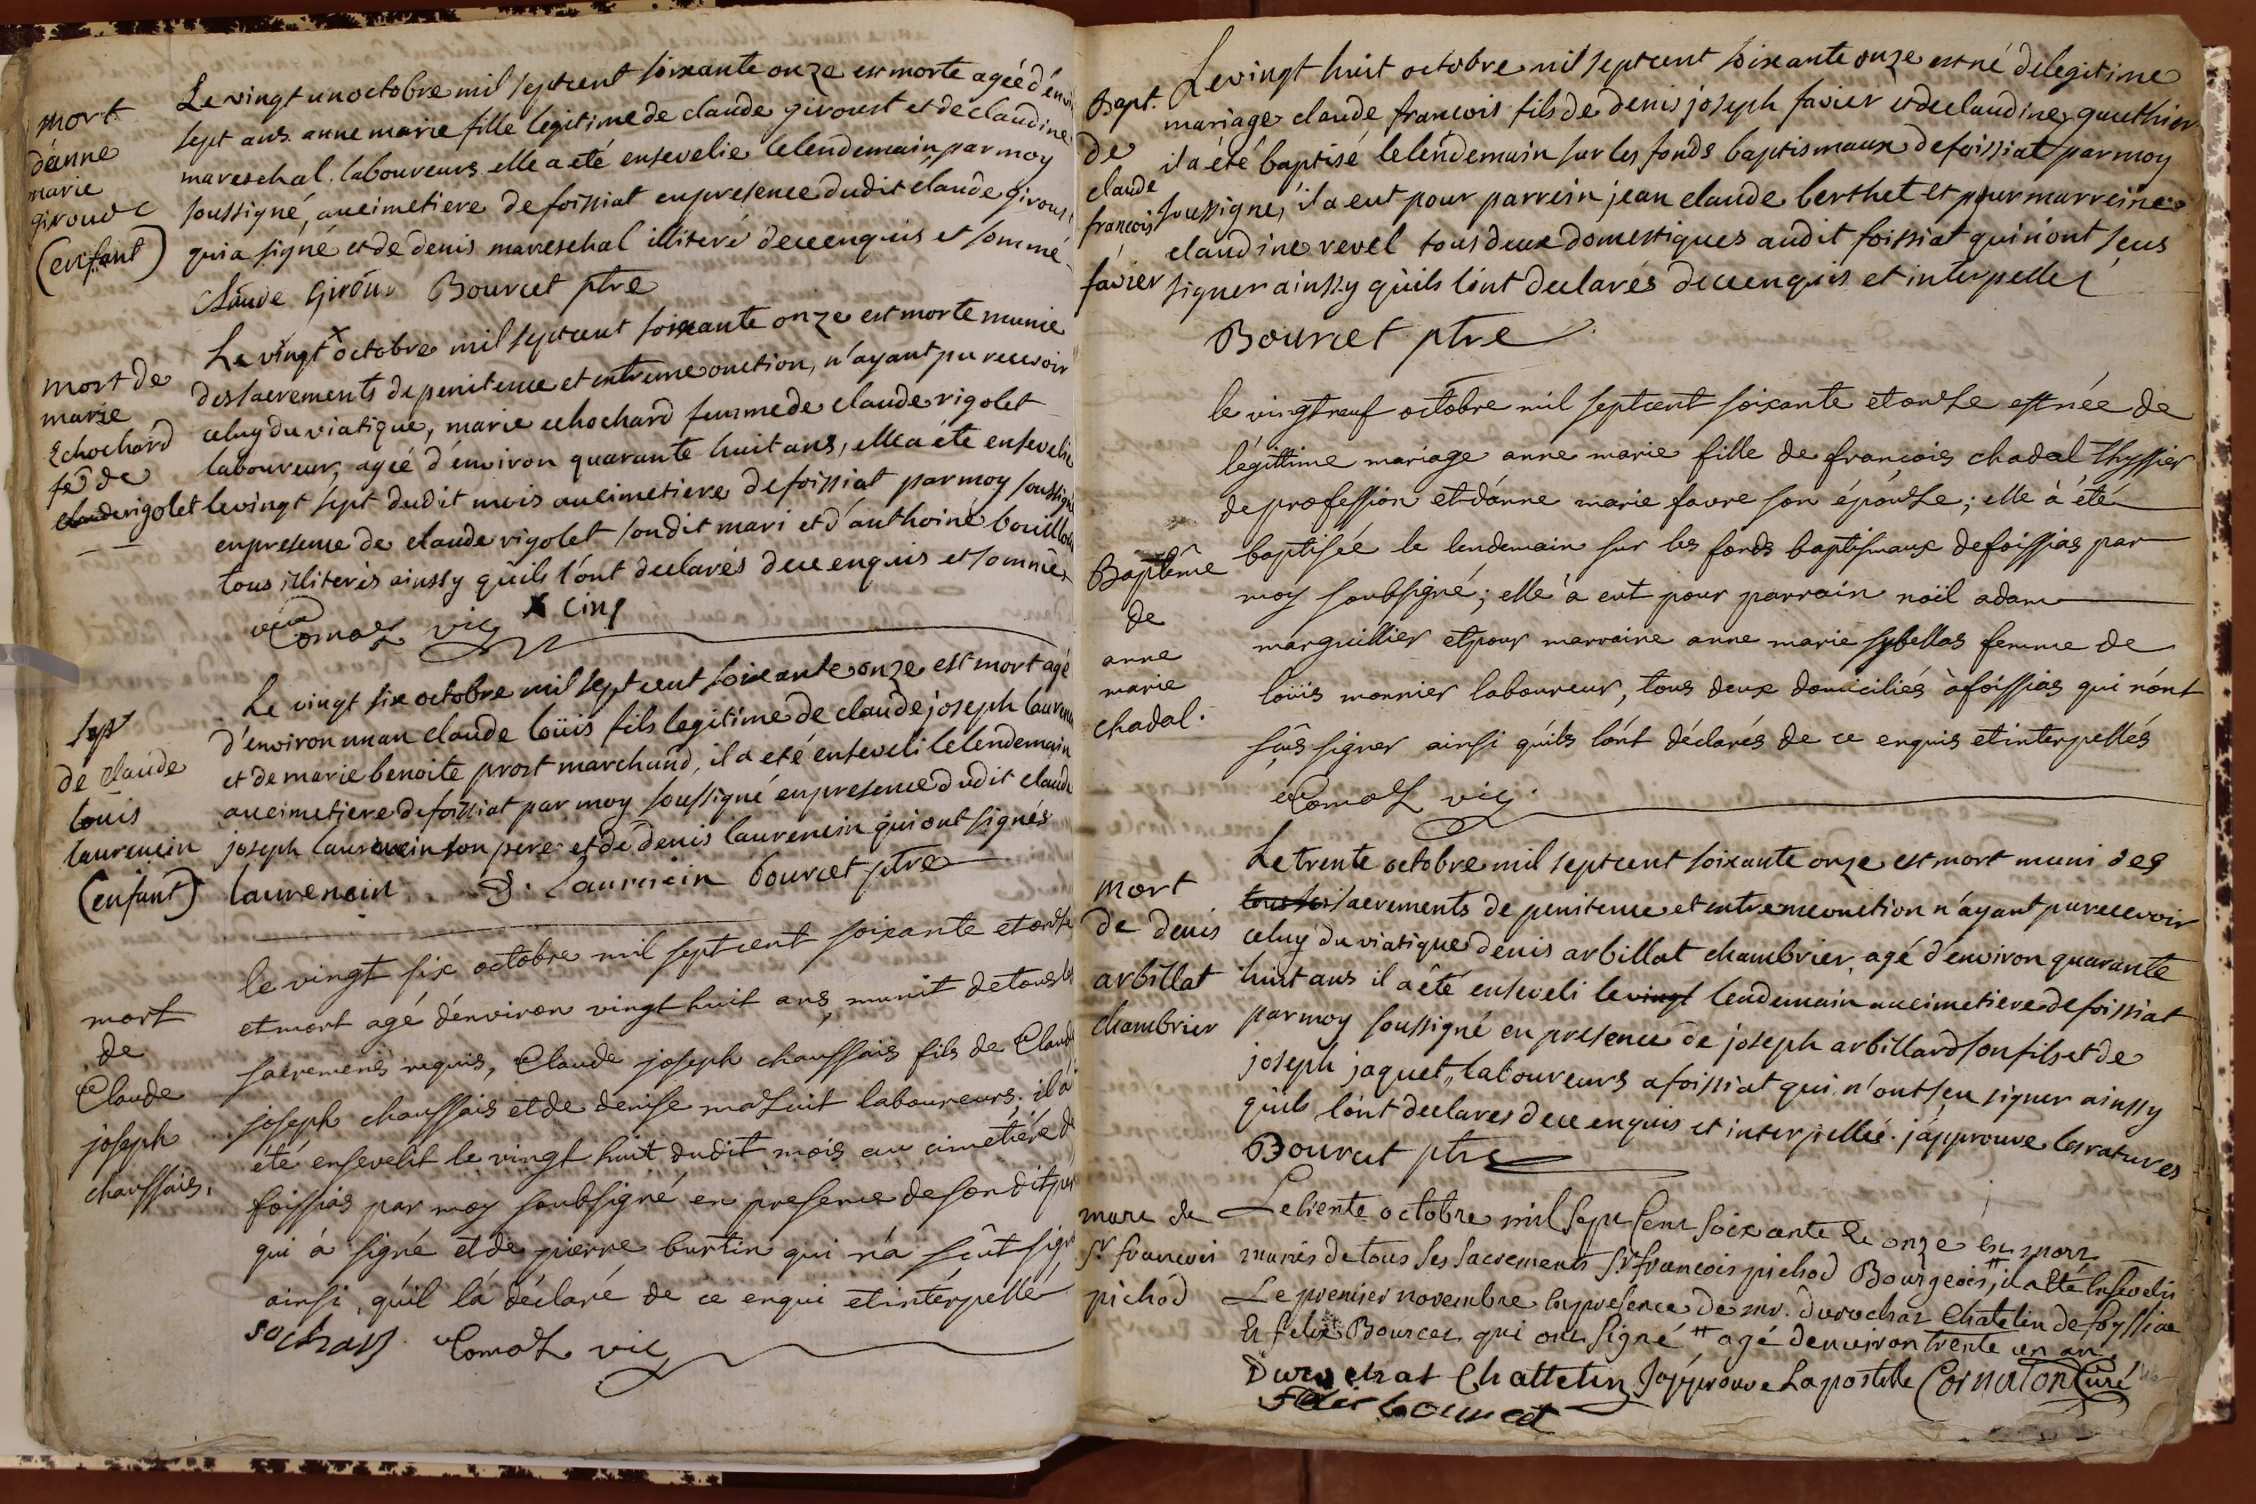 mort
d'anne
marie
giroud
(enfant)
Le vingt un octobre mil septcent soixante onze est morte agéé d'envi
sept ans anne marie fille legitime de claude giroust et de claudine
mareschal laboureurs elle a eté ensevelie le lendemain par moy
soussigné, au cimetiere de foissiat en presence dudit claude giroust
qui a signé et de denis mareschal illiteré de ce enquis et sommé
Claude Girou Bourcet ptre
mort de
marie
Echochard
fe de
claude rigolet
Le vingt x octobre mil septcent soixante onze est morte munie
des sacrements de penitence et extreme onction, n'ayant pu recevoir
celuy du viatique, marie echochard femme de claude rigolet
laboureur, agéé d'environ quarante huit ans, elle a eté ensevelie
le vingt sept dudit mois au cimetiere de foissiat par moy soussigné
en presence de claude rigolet sondit mari et d'anthoine bouillou
tous illiterés ainssy qu'ils l'ont declarés de ce enquis et sommés
vic x cinq
Sept
de claude
louis
laurencin
(enfant)
Le vingt six octobre mil septcent soixante onze est mort agé
d'environ un an claude loüis fils legitime de claude joseph laurencin
et de marie benoite prost marchand, il a eté enseveli le lendemain
au cimetiere de foissiat par moy soussigné en presence dudit claude
joseph laurencin son pere et de denis laurencin qui ont signés
laurencin D. Laurencin bourcet ptre
mort
de
Claude
joseph
chaussais.
le vingt six octobre mil septcent soixante et onse
est mort agé d'environ vingt huit ans, munit de tous les
sacrements requis, Claude joseph chaussais fils de Claude
joseph chaussais et de denise mazuit laboureurs; il a
été ensevelit le vingt huit dudit mois au cimetiére de
foissias par moy soubsigné en presence de son dit pere
qui à signé et de pierre burtin qui n'a sçût signé
ainsi, qu'il l'a déclaré de ce enqui et intérpellé
vic
Bapt.
de
claude
francois
favier
Le vingt huit octobre mil septcent soixante onze est né de legitime
mariage claude francois fils de denis joseph favier et de claudine gauthier
il a été baptisé le lendemain sur les fonds baptismaux de foissiat par moy
soussigné, il a eut pour parrein jean claude berthet et pour marreine
claudine revel tous deux domestiques audit foissiat qui n'ont sçus
signer ainssy qu'ils l'ont declarés de ce enquis et interpellés
Bourcet ptre
Baptême
de
anne
marie
chadal.
le vingt neuf octobre mil septcent soixante et onse est née de
légittime mariage anne marie fille de françois chadal thyssier
de profession et d'anne marie favre son épouse; elle à été
baptisée le lendemain sur les fonds baptismaux de foissias par
moy soubsigné; elle à eut pour parrain noïl adam
marguillier et pour marraine anne marie sybellas femme de
loüis monnier laboureur, tous deux domiciliés à foissias qui n'ont
sçûs signer ainsi qu'ils l'ont déclarés de ce enquis et interpellés
vic
mort
de denis
arbillat
chambrier
Le trente octobre mil septcent soixante onze est mort muni des
tous les sacrements de penitence et extreme onction n'ayant pu recevoir
celuy du viatique denis arbillat chambrier, agé d'environ quarante
huit ans il a été enseveli le vingt lendemain au cimetiere de foissiat
par moy soussigné en presence de joseph arbillard son fils et de
joseph jaquet, laboureurs a foissiat qui n'ont sçu signer ainssy
qu'ils l'ont declares de ce enquis et interpellés. j'approuve les ratures
Bourcet ptre
mort de
Sr francois
pichod
Le trente octobre mil sept Cent soixante et onze est mort
munis de tous ses sacrements Sr francois pichod Bourgeois, # il a été Ensevelis
Le premier novembre En presence de mr. durochat Chatelin de foyssiat
Et felix Bourcet qui ont signé # agé denviron trente un an
Durochat Chattelin J'approuve Lapostille Cornaton Curé
Felix bourcet